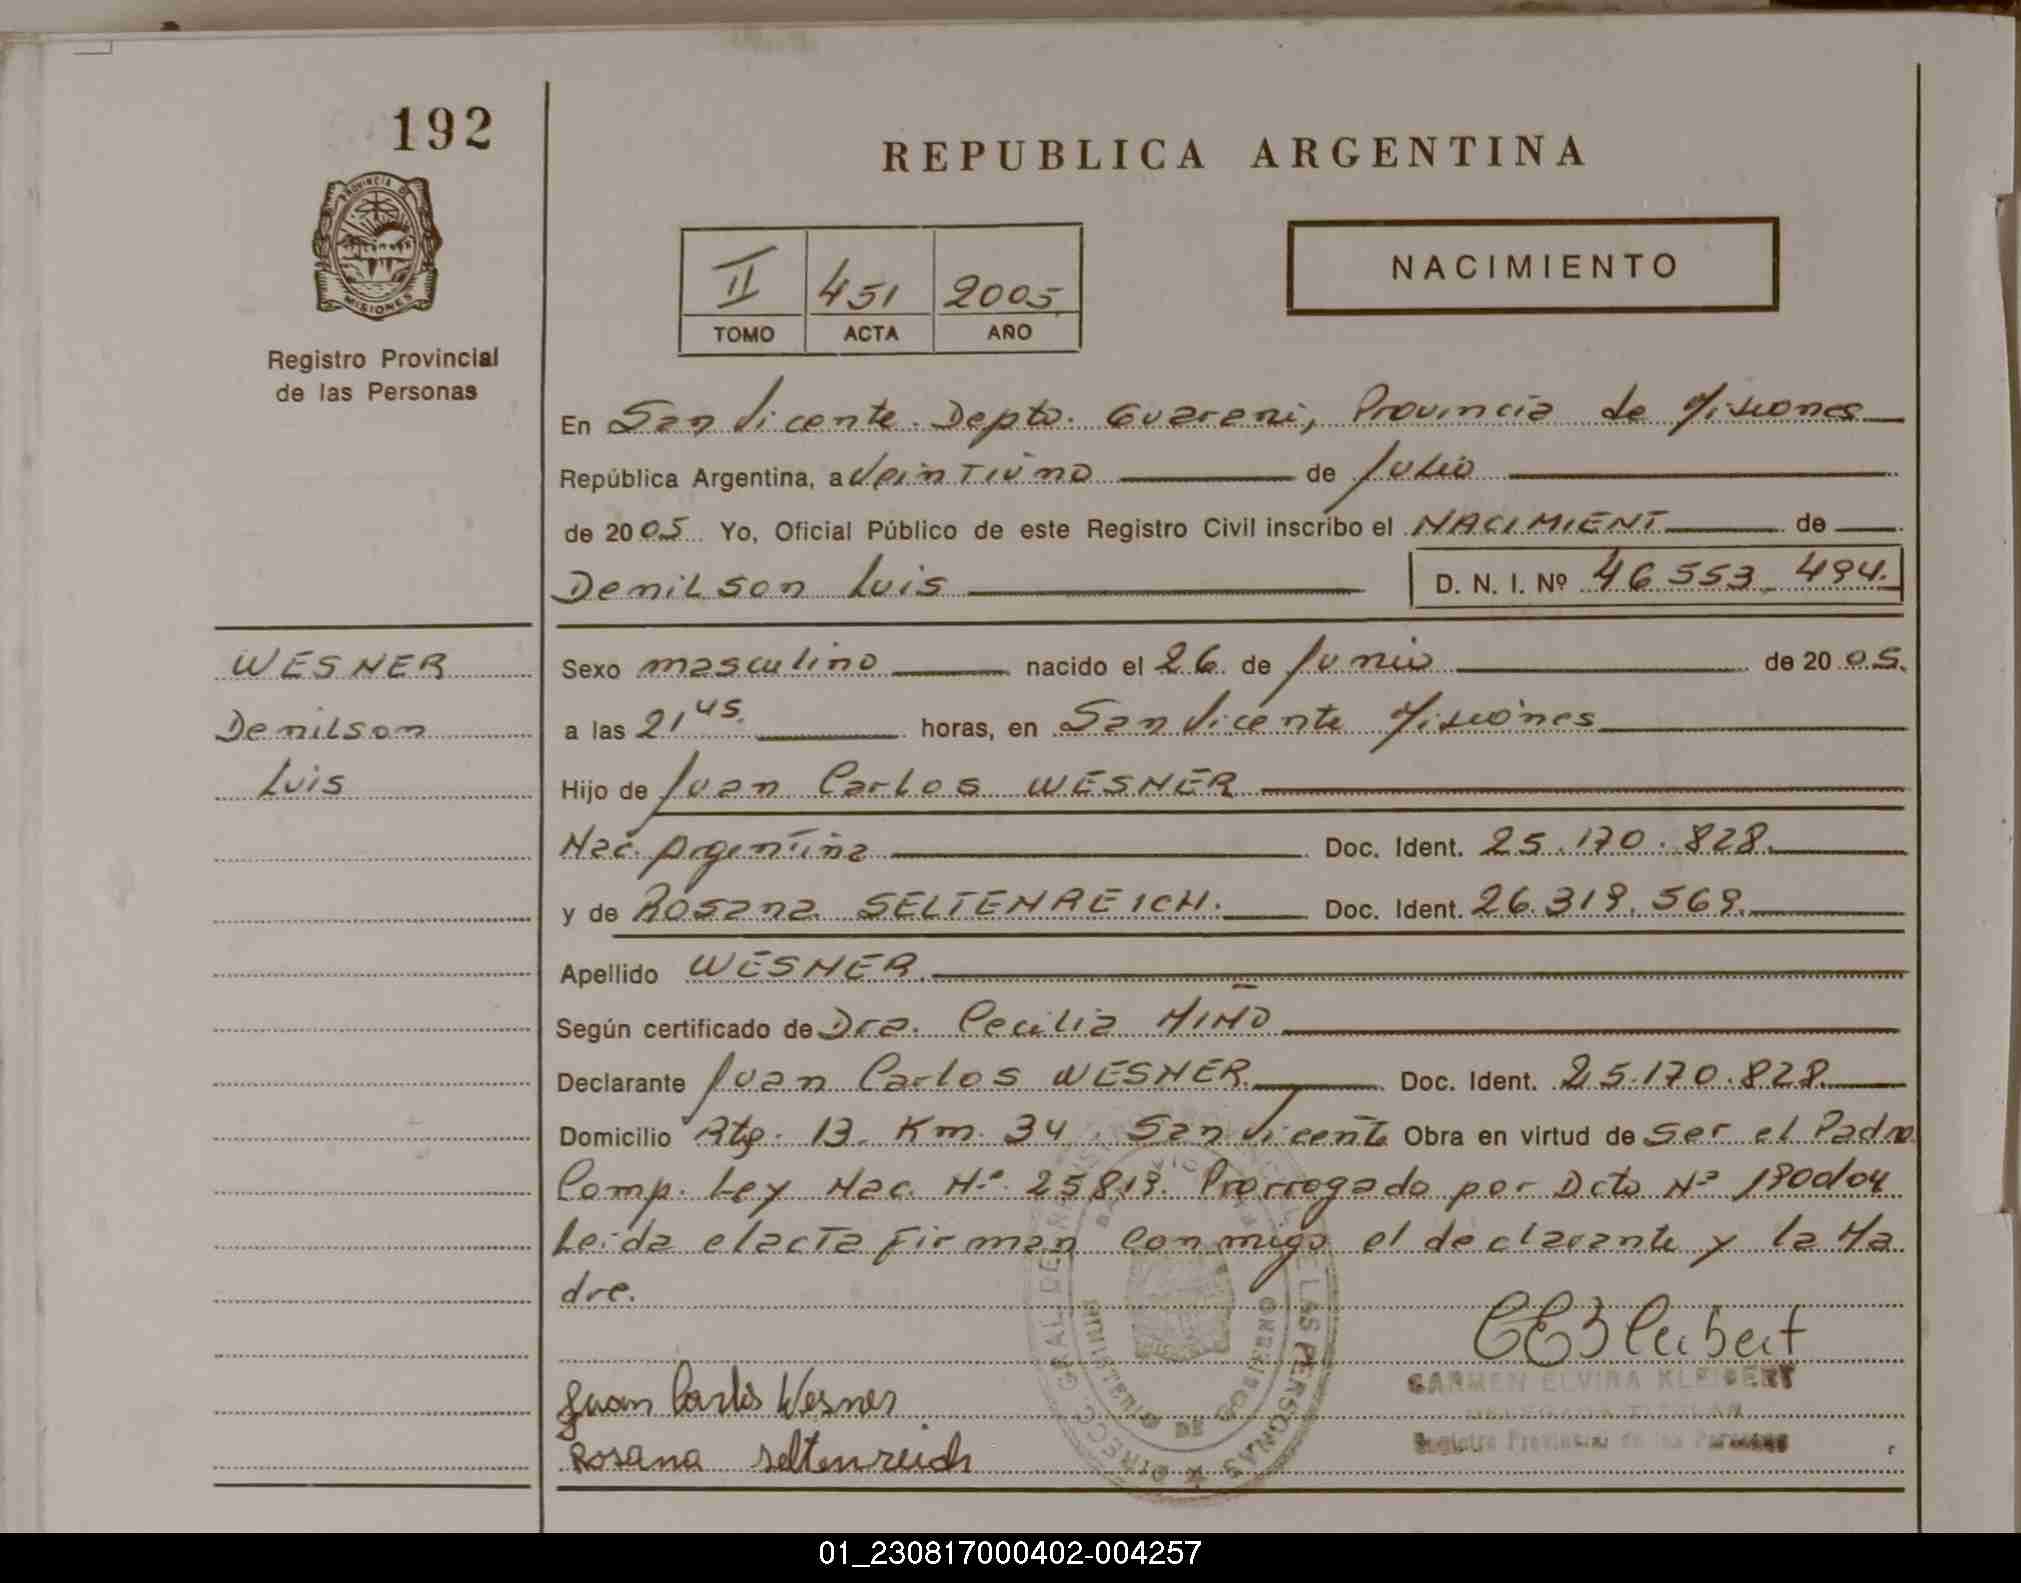 192
PROVINCIA DE
MISIONES
Registro Provincial
de las Personas
REPUBLICA ARGENTINA
II 451 2005
TOMO ACTA AÑO
NACIMIENTO
En San Vicente. Depto. Guarani, Provincia de Misiones
República Argentina, a Veintiuno de Julio
de 2005 Yo, Oficial Público de este Registro Civil inscribo el NACIMIENT de
Denilson Luis D. N. I. Nº 46.553.494.
WESNER
Denilson
Luis
Sexo masculino nacido el 26 de Junio de 2005.
a las 21 45. horas, en San Vicente Misiones
Hijo de Juan Carlos WESNER
Nac. Argentina Doc. Ident. 25.170.828.
y de Rosana SELTENREICH. Doc. Ident. 26.319.569.
Apellido WESNER
Según certificado de Dra. Cecilia MIÑO
Declarante Juan Carlos WESNER Doc. Ident. 25.170.828.
Domicilio Rta. 13. Km. 34. San Vicente Obra en virtud de Ser el Padre
Comp. Ley Nac. Nº 25819. Prorrogado por Dcto Nº 1900/04
Leida el acta firman conmigo el declarante y la Ma
dre.
CEKleibert
CARMEN ELVIRA KLEIBERT
DELEGADA TITULAR
Registro Provincial de las Personas
Juan Carlos Wesner
Rosana seltenreich
MINISTERIO DE GOBIERNO
01_230817000402-004257